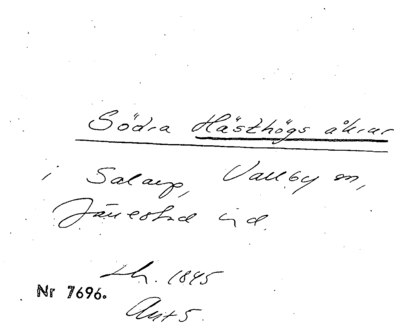 Södra Hästhögs åkrar
i Salarp, Vallby sn,
Järrestad hd.
Lh. 1845
Nr 7696.
Akt 5.